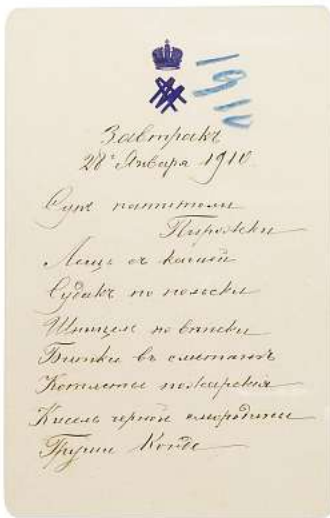 1910
Завтракъ
28го Января 1910.
Супъ
Пирожки
Лещъ съ кашей
Судакъ по польски
Шницель по вѣнски
Битки въ сметанѣ
Котлеты пожарскія
Кисель черной смородины
Груши Конде